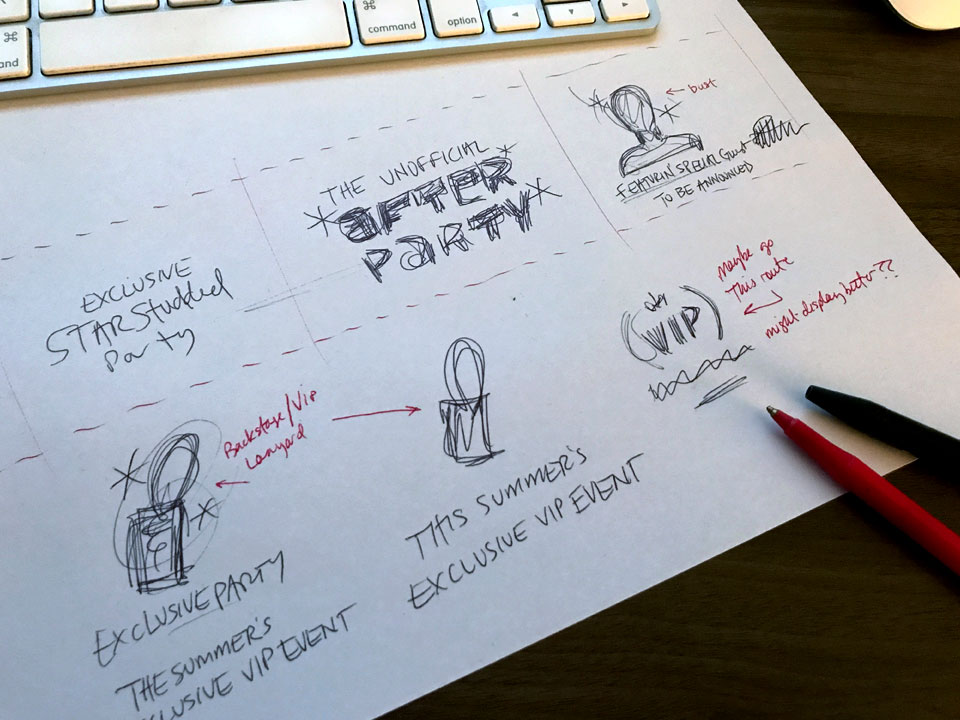 ⌘
command
option
⌘
and
bust
FEATURIN SPECIAL Guest
TO BE ANNOUNCED
THE UNOFFICIAL
AFTER
PARTY
EXCLUSIVE
STAR Studded
Party
Maybe go
This route
might display better??
VIP
Backstage/Vip
Lanyard
THIS SUMMER'S
EXCLUSIVE VIP EVENT
EXCLUSIVE PARTY
THE SUMMER'S
CLUSIVE VIP EVENT